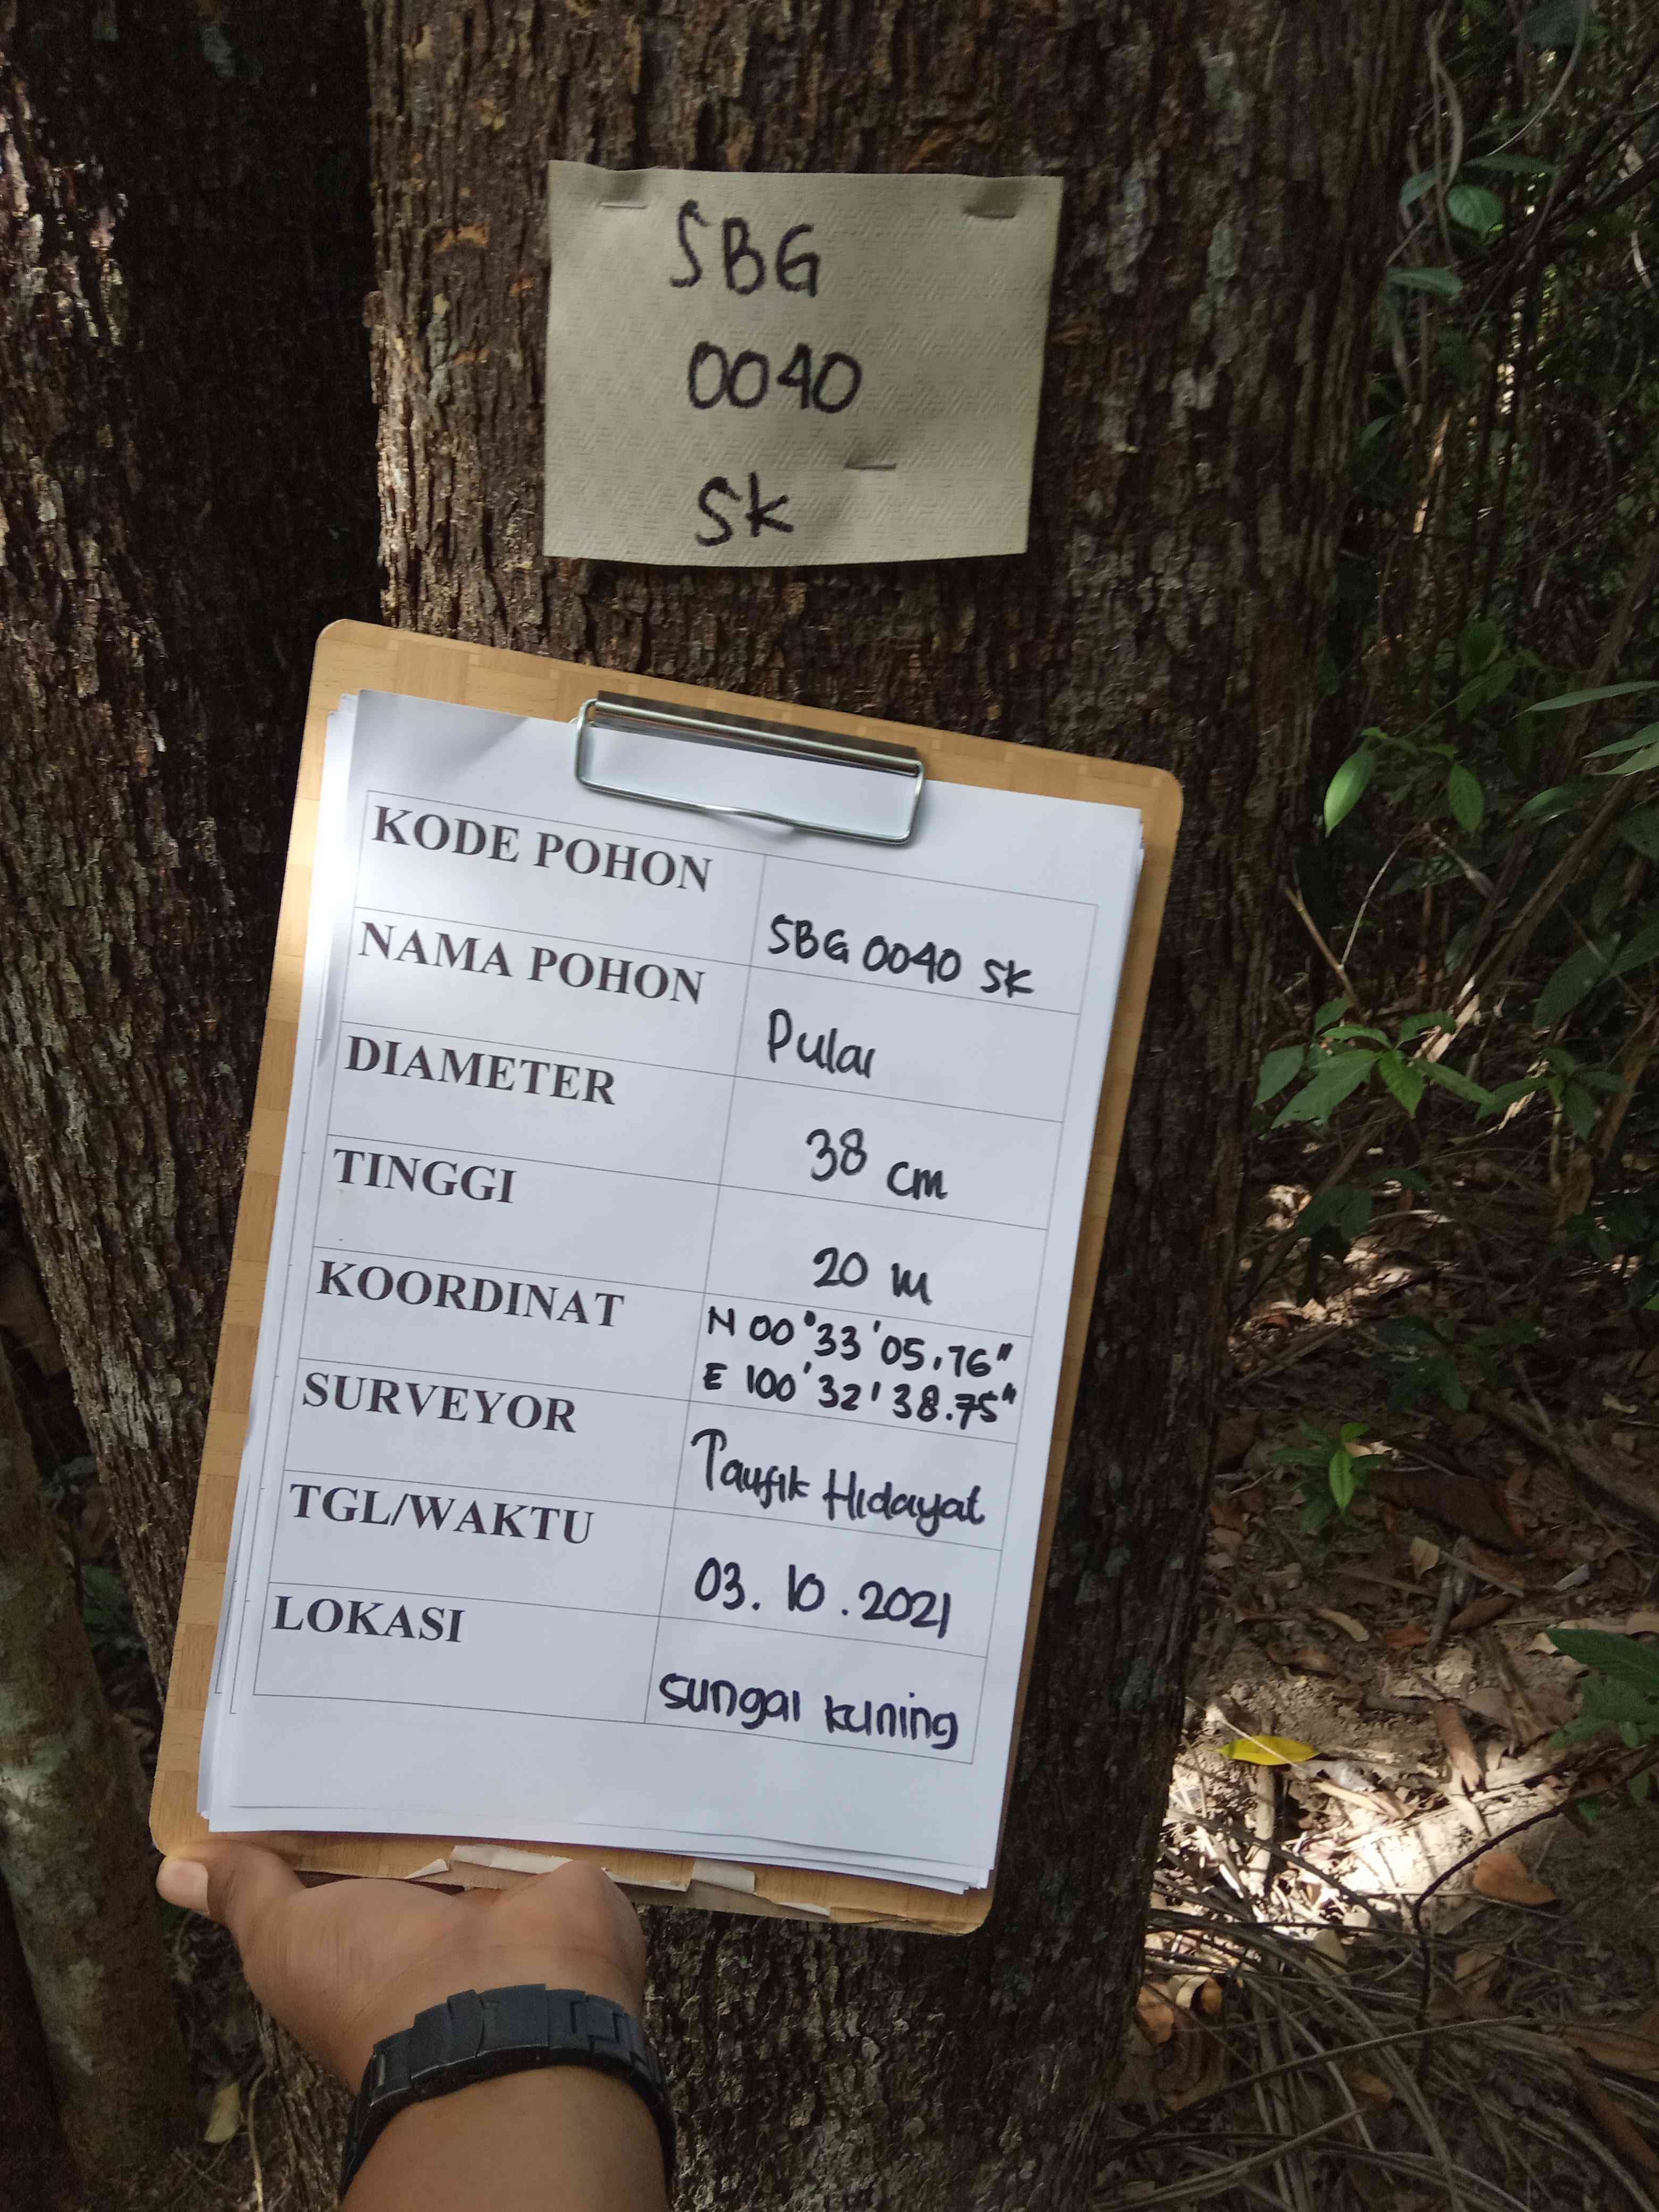 SBG
0040
SK
KODE POHON
SBG 0040 SK
NAMA POHON
Pulai
DIAMETER
38 cm
TINGGI
20 m
KOORDINAT
N 00°33'05.76"
E 100'32'38.75"
SURVEYOR
Taufik Hidayat
TGL/WAKTU
03.10.2021
LOKASI
Sungai kuning